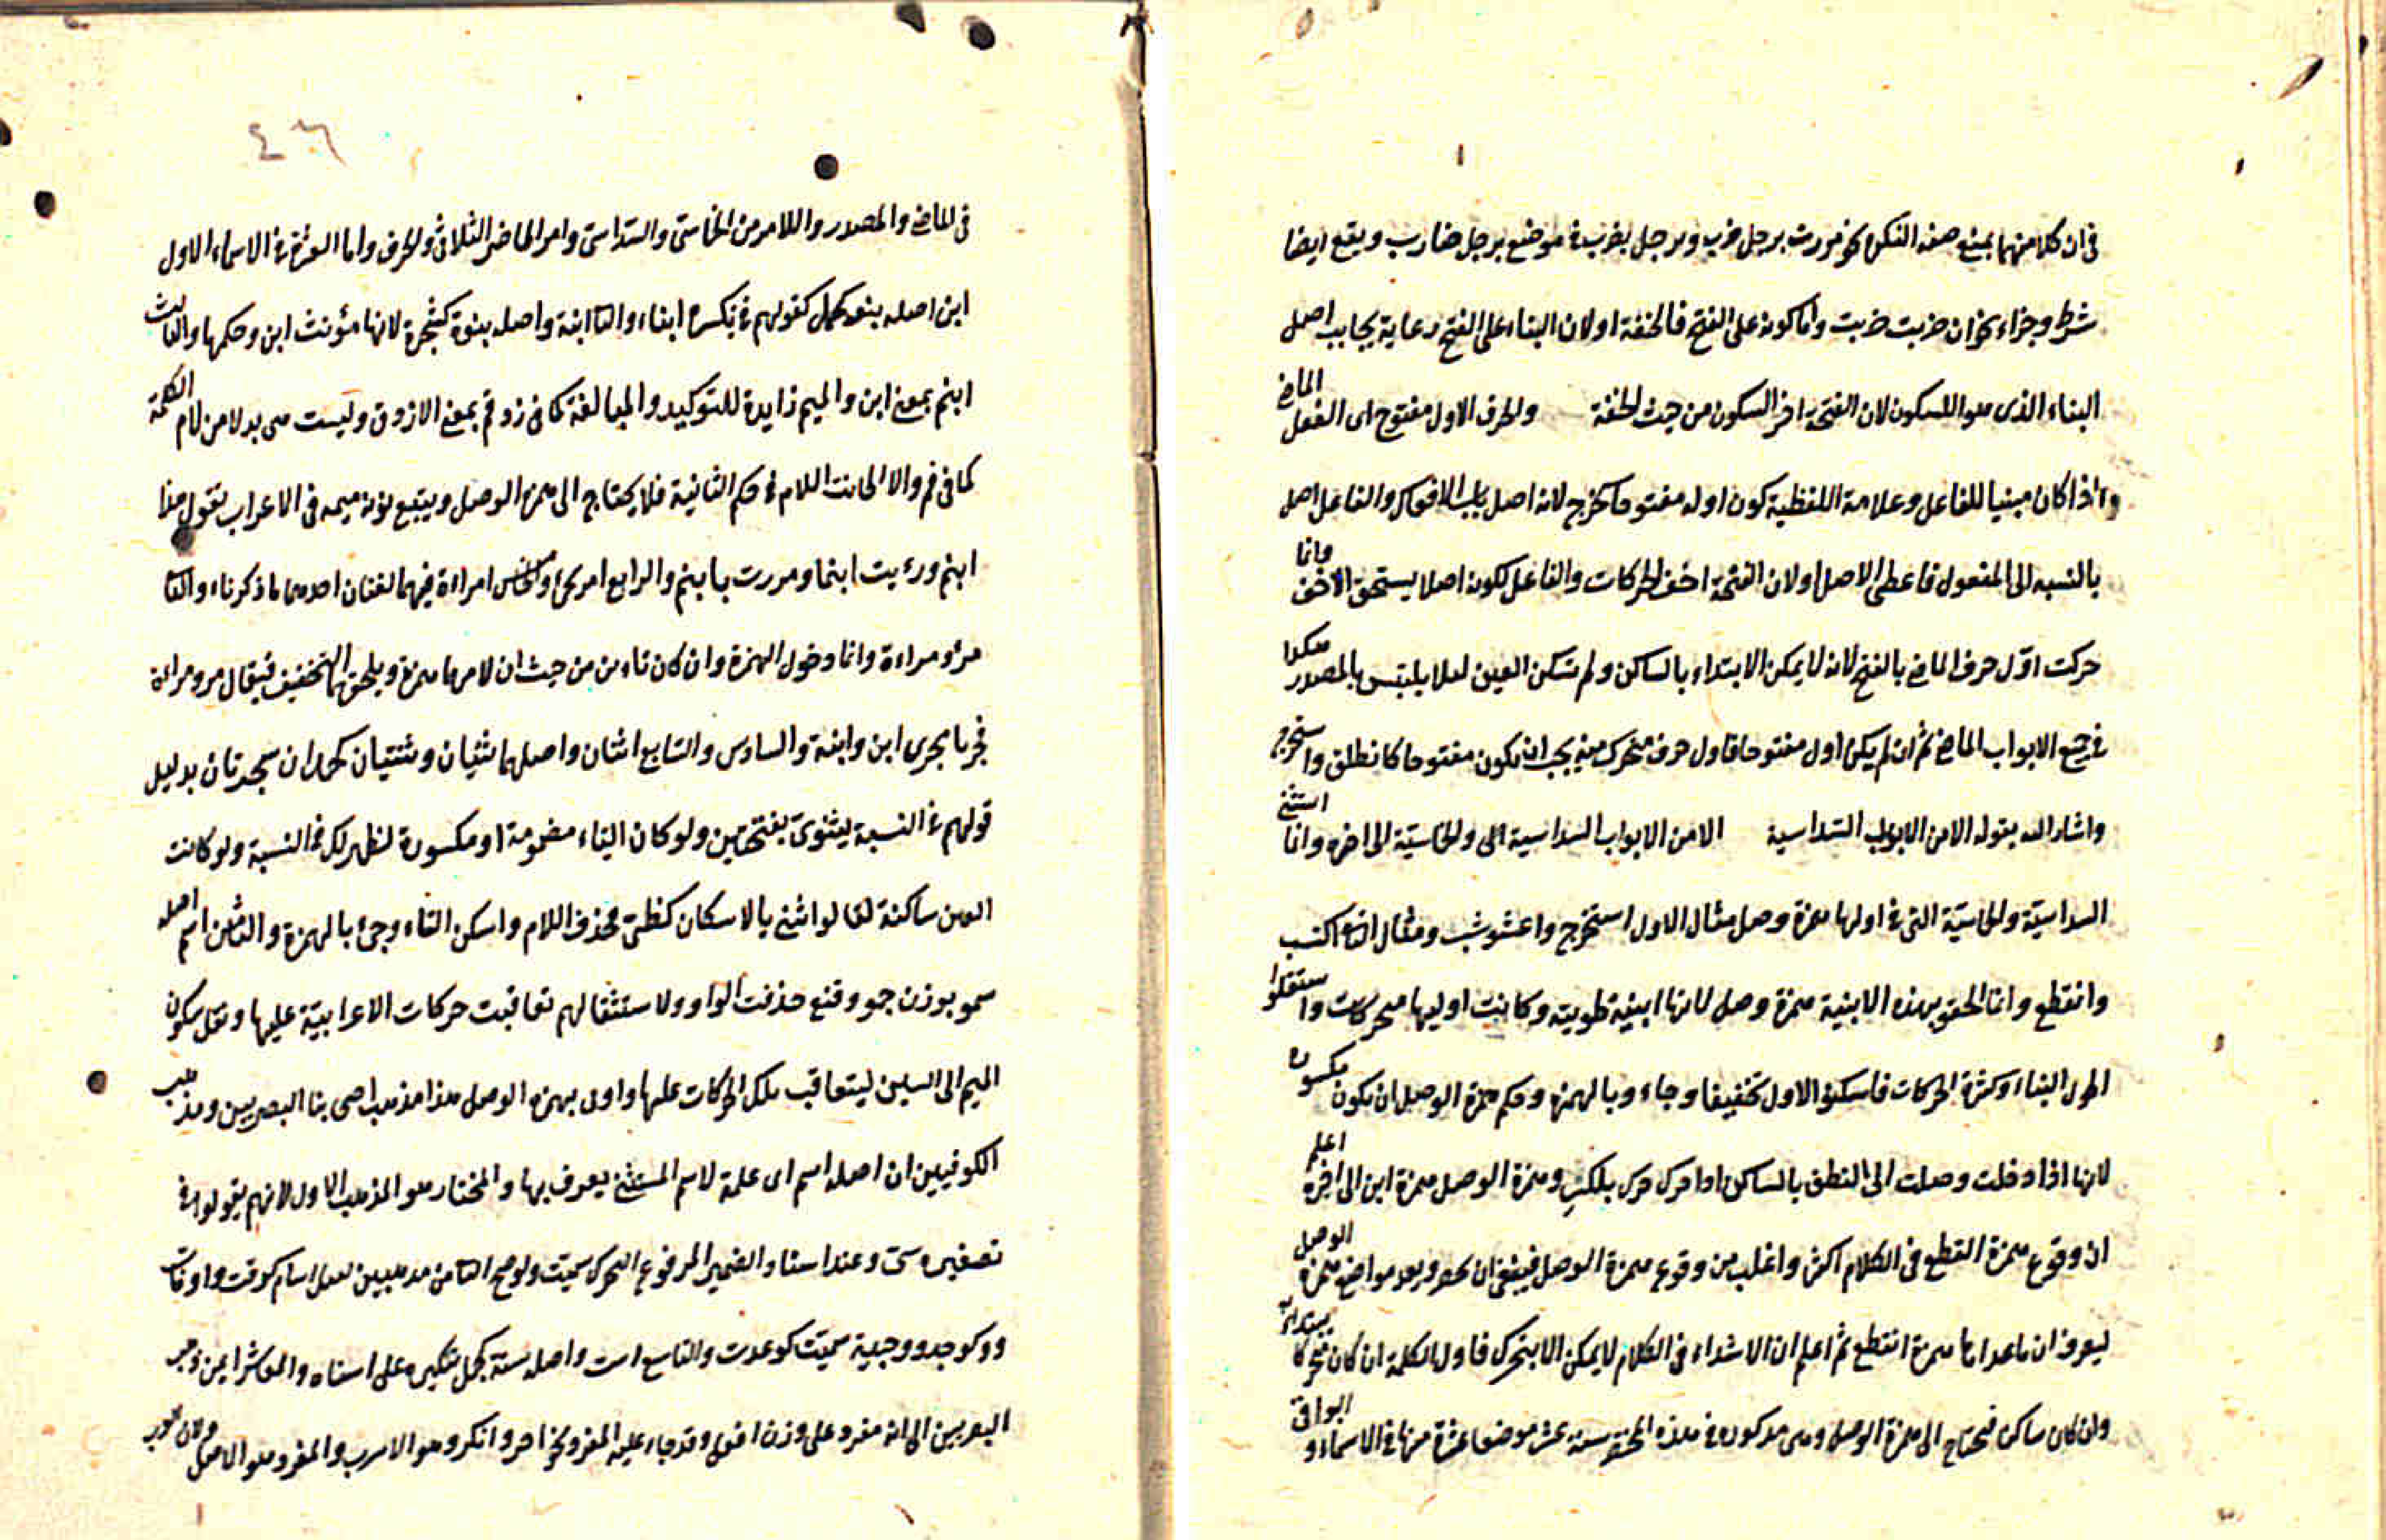 فى ان كلا منهما بمنع صفة النكرة نحو مررت برجل ضرب وبرجل يضرب فى موضع برجل ضارب ويقع ايضا
شرط وجزاء نحو ان ضربت ضربت واما كونه على الفتح فالخفة او لان البناء على الفتح رعاية بجانب اصل
البناء الذى هو السكون لان الفتحة اخ السكون من حيث الخفة والحرف الاول مفتوح اى الفعل الماضى
واذا كان مبنيا للفاعل وعلامة اللفظية كون اوله مفتوحا كخرج لانه اصل باب الافعال والفاعل اصل
بالنسبة الى المفعول فاعطى الاصل او لان الفتحة اخف الحركات والفاعل لكونه اصلا يستحق الاخف وانما
حركت اول حرف الماضى بالفتح لانه لا يمكن الابتداء بالساكن ولم تسكن العين لئلا يلتبس بالمصدر هكذا
فى جميع الابواب الماضى ثم ان لم يكن اول مفتوحا فاول حرف متحرك منه يجب ان يكون مفتوحا كانطلق واستخرج
واشار اليه بقوله الا من الابواب السداسية الا من الابواب السداسية الى والخماسية الى اخره وانما استثنى
السداسية والخماسية التى فى اولها همزة وصل مثال الاول استخرج واعشوشب ومثال الثانى اكتسب
وانقطع وانما الحقو بهذه الابنية همزة وصل لانها ابنية طويلة وكانت اوليها متحركات واستثقلوا
اطول البناء وكثرة الحركات فاسكنوا الاول تخفيفا وجاء وبالهمزة وحكم همزة الوصل ان يكون مكسورة
لانها اذا دخلت وصلت الى النطق بالساكن اذا حرك حرك بالكسر وهمزة الوصل همزة ابن الى اخره اعلم
ان وقوع همزة القطع فى الكلام اكثر واغلب من وقوع همزة الوصل فينبغى ان يحصر ويعد مواضع همزة الوصل
ليعرف ان ما عداها همزة القطع ثم اعلم ان الابتداء فى الكلام لا يمكن الا بمتحرك فاول الكلمة ان كان متحركا يبتداء به
وان كان ساكن فيحتاج الى همزة الوصل وهى مذكورة فى هذه المختصر ستة عشر موضعا عشرة منها فى الاسماء والبواقى
٤٦
فى الماضى والمصدر والامر من الخماسى والسداسى وامر الحاضر الثلاثى والحرف واما العشرة فى الاسماء الاول
ابن اصله بنو كجمل كقولهم فى تكسيره ابناء والثانى ابنة واصله بنوة كشجرة لانها مؤنث ابن وحكمها والثالث
ابنم بمعنى ابن والميم زايدة للتوكيد والمبالغة كما فى زرقم بمعنى الازرق وليست هى بدلا من لام الكلمة
كما فى فم والا لكانت اللام فى حكم الثانية فلا يحتاج الى همزة الوصل ويتبع نونه ميمه فى الاعراب تقول هذا
ابنم ورءيت ابنما ومررت بابنم والرابع امرئ والخامس امراءة فيهما لغتان احدهما ما ذكرناه والثانى
مرء ومراءة وانما دخول الهمزة وان كان تاءمن من حيث ان لامها همزة ويلحق بها التخفيف فيقال مر ومراة
فجريا مجرى ابن وابنة والسادس والسابع اثنان واصلهما ثنيان وثنتيان كجملان سجرتان بدليل
قولهم فى النسبة ثنوى بفتحتين ولو كان الثاء مضمومة او مكسورة لظهر لك فى النسبة ولو كانت
العين ساكنة لقالوا ثنى بالاسكان كظبى محذف اللام واسكن الثاء وجئ بالهمزة والثامن اسم اصله
سمو بوزن جمو وقنع حذفت الواو ولا ستثقالهم تعاقبت حركات الاعرابية عليها ونقل سكون
الميم الى السين ليتعاقب تلك الحركات عليها واوتى بهمزة الوصل هذا مذهب اصحابنا البصريين ومذهب
الكوفيين ان اصله اسم اى علمة لاسم المسمى يعرف بها والمختار هو المذهب الاول لانهم يقولوا فى
تصغيره سمى وعند اسناد الضمير المرفوع المتحرك سميت ولو صح الثانى من مذهبين لقيل اسام كوقت واوقات
ووكوجد ووجدية سميت كوعدت والتاسع است واصله ستة كجمل تكسيره على استاه والعاشر ايمن ذهب
البصريين الى انه مفرد على وزن افعل وقد جاء عليه المفرد نحو احر وانكر وهو الاسرب والمفرد هو الاصل